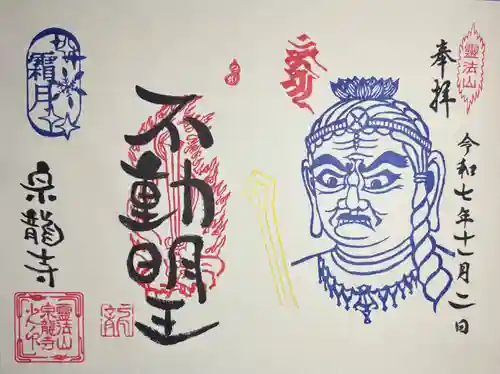 霊法山
奉拝
令和七年十一月二日
不動明王
霜月
泉龍寺
霊法山
泉龍寺